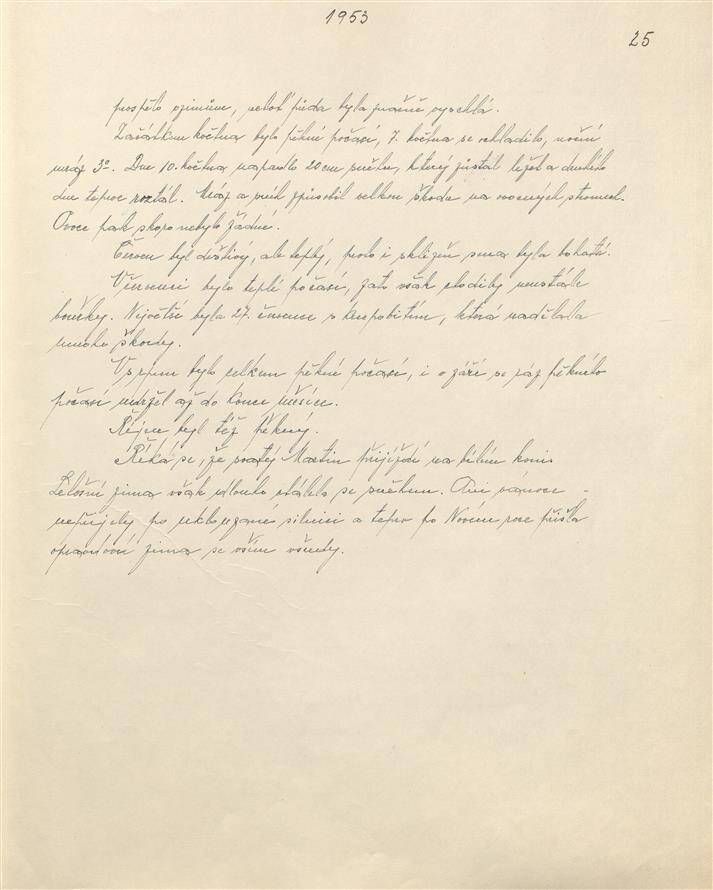 1953
25
prospělo ozimům, neboť půda byla značně vyschlá.
Začátkem května bylo pěkné počasí, 7. května se ochladilo, noční
mráz 3°. Dne 10. května napadlo 20 cm sněhu, který zůstal ležet a druhého
dne teprve roztál. Mráz a sníh způsobil velkou škodu na ovocných stromech.
Ovoce pak skoro nebylo žádné.
Červen byl deštivý, ale teplý, proto i sklizeň sena byla bohatá.
V červenci bylo teplé počasí, zato však škodily neustále
bouřky. Největší byla 27. července s krupobitím, která nadělala
mnoho škody.
V srpnu bylo celkem pěkné počasí, i v září se ráz pěkného
počasí udržel až do konce měsíce.
Říjen byl též pěkný.
Říká se, že svatý Martin přijíždí na bílém koni.
Letošní zima však dlouho otálela se sněhem. Ani vánoce
nepřijely po uklouzané silnici a teprv po Novém roce přišla
opravdová zima se vším všudy.